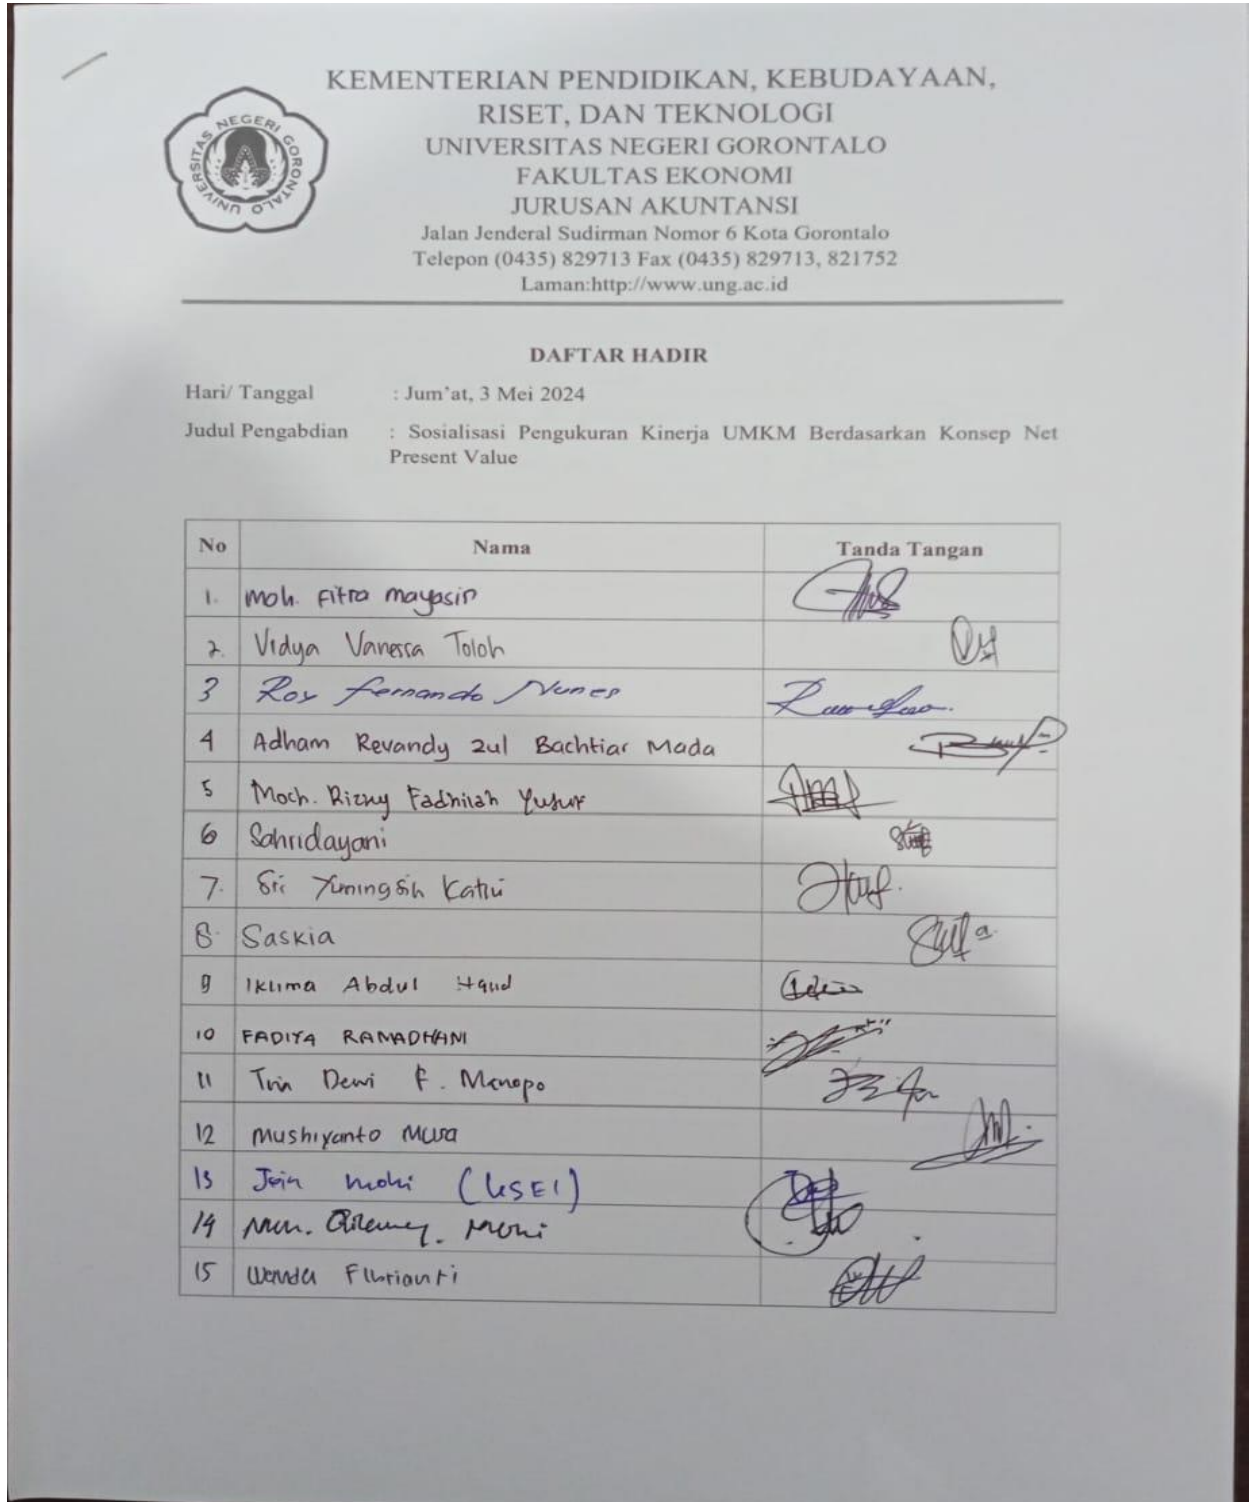 UNIVERSITAS NEGERI GORONTALO
KEMENTERIAN PENDIDIKAN, KEBUDAYAAN,
RISET, DAN TEKNOLOGI
UNIVERSITAS NEGERI GORONTALO
FAKULTAS EKONOMI
JURUSAN AKUNTANSI
Jalan Jenderal Sudirman Nomor 6 Kota Gorontalo
Telepon (0435) 829713 Fax (0435) 829713, 821752
Laman:http://www.ung.ac.id
DAFTAR HADIR
Hari/ Tanggal : Jum'at, 3 Mei 2024
Judul Pengabdian : Sosialisasi Pengukuran Kinerja UMKM Berdasarkan Konsep Net
Present Value
No Nama Tanda Tangan
1. Moh. Fitra mayasir
2. Vidya Vanessa Toloh
3 Roy Fernando Nunes
4 Adham Revandy Zul Bachtiar Mada
5 Moch. Rizky Fadhilah Yusuf
6 Sahridayani
7. Sri Yuningsih Katili
8. Saskia
9 Iklima Abdul
10 FADIYA RAMADHANI
11 Tria Dewi F. Manopo
12 Mushiyanto Musa
13 Join Mohi (KSEI)
14
15 Wenda